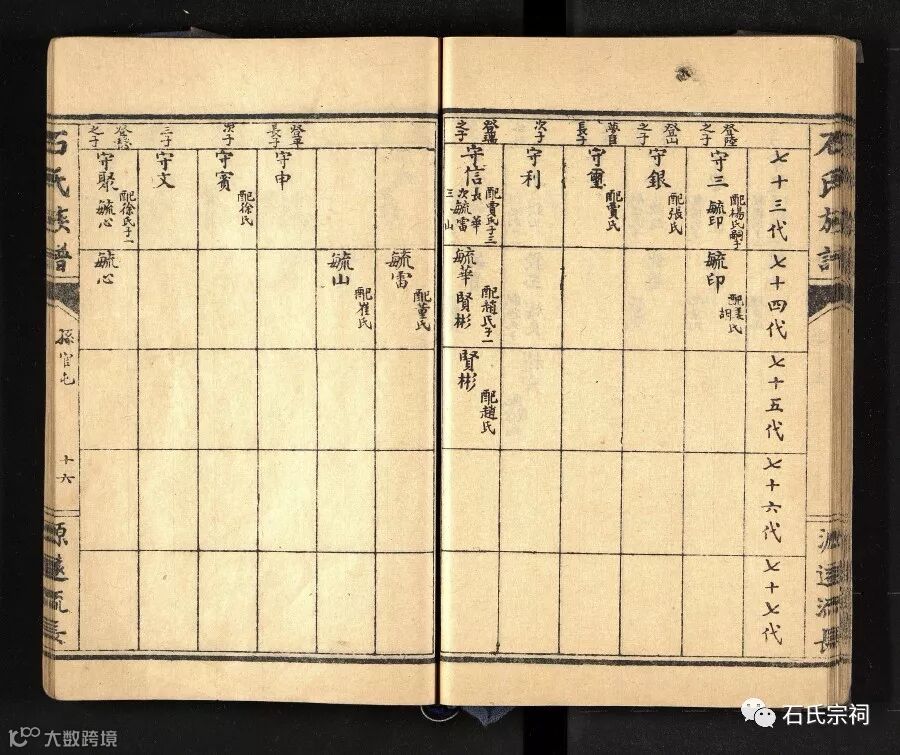 石氏族譜
源遠流長
七十三代
七十四代
七十五代
七十六代
七十七代
登陸之子
守三
配楊氏嗣子
毓印
毓印
配姜氏
胡
登山之子
守銀
配張氏
長子
守璽
配賈氏
次子
守利
之子
守信
配賈氏子三
長華
次毓雷
三山
毓華
配趙氏子一
賢彬
賢彬
配趙氏
毓雷
配董氏
毓山
配崔氏
長子
守申
次子
守賓
配徐氏
三子
守文
之子
守聚
配徐氏子一
毓心
毓心
石氏族譜
孫官屯
十六
源遠流長
石氏宗祠
大数跨境